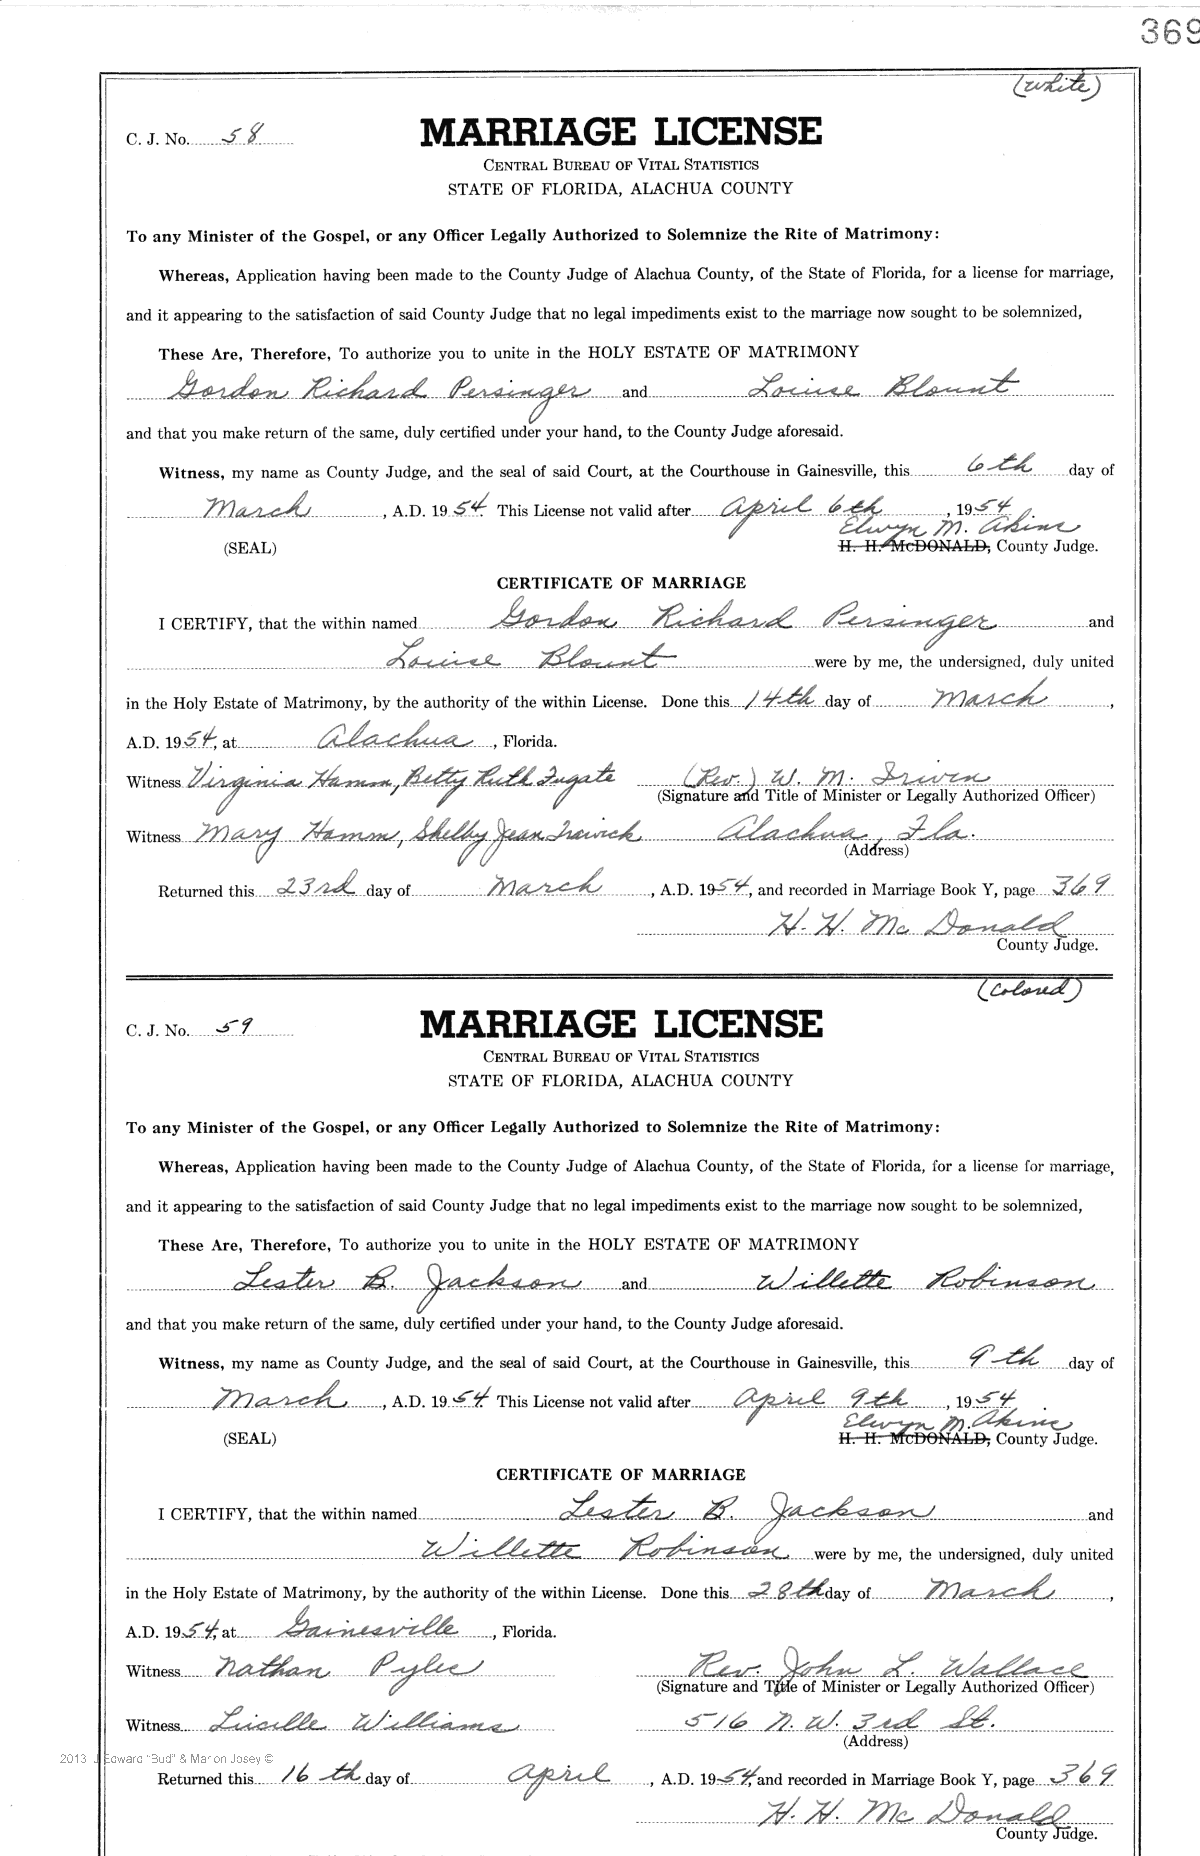 369
(White)
C. J. No. 58
MARRIAGE LICENSE
CENTRAL BUREAU OF VITAL STATISTICS
STATE OF FLORIDA, ALACHUA COUNTY
To any Minister of the Gospel, or any Officer Legally Authorized to Solemnize the Rite of Matrimony:
Whereas, Application having been made to the County Judge of Alachua County, of the State of Florida, for a license for marriage,
and it appearing to the satisfaction of said County Judge that no legal impediments exist to the marriage now sought to be solemnized,
These Are, Therefore, To authorize you to unite in the HOLY ESTATE OF MATRIMONY
Gordon Richard Persinger and Louise Blount
and that you make return of the same, duly certified under your hand, to the County Judge aforesaid.
Witness, my name as County Judge, and the seal of said Court, at the Courthouse in Gainesville, this 6th day of
March, A.D. 1954. This License not valid after April 6th, 1954
Elwyn M. Akins
(SEAL) H. H. McDONALD, County Judge.
CERTIFICATE OF MARRIAGE
I CERTIFY, that the within named Gordon Richard Persinger and
Louise Blount were by me, the undersigned, duly united
in the Holy Estate of Matrimony, by the authority of the within License. Done this 14th day of March,
A.D. 1954, at Alachua, Florida.
Witness Virginia Hamm, Betty Ruth Fugate (Rev.) W. M. Irwin
(Signature and Title of Minister or Legally Authorized Officer)
Witness Mary Hamm, Shelby Jean Trawick Alachua, Fla.
(Address)
Returned this 23rd day of March, A.D. 1954, and recorded in Marriage Book Y, page 369
H. H. McDonald
County Judge.
(Colored)
C. J. No. 59
MARRIAGE LICENSE
CENTRAL BUREAU OF VITAL STATISTICS
STATE OF FLORIDA, ALACHUA COUNTY
To any Minister of the Gospel, or any Officer Legally Authorized to Solemnize the Rite of Matrimony:
Whereas, Application having been made to the County Judge of Alachua County, of the State of Florida, for a license for marriage,
and it appearing to the satisfaction of said County Judge that no legal impediments exist to the marriage now sought to be solemnized,
These Are, Therefore, To authorize you to unite in the HOLY ESTATE OF MATRIMONY
Lester B. Jackson and Willette Robinson
and that you make return of the same, duly certified under your hand, to the County Judge aforesaid.
Witness, my name as County Judge, and the seal of said Court, at the Courthouse in Gainesville, this 9th day of
March, A.D. 1954. This License not valid after April 9th, 1954
Elwyn M. Akins
(SEAL) H. H. McDONALD, County Judge.
CERTIFICATE OF MARRIAGE
I CERTIFY, that the within named Lester B. Jackson and
Willette Robinson were by me, the undersigned, duly united
in the Holy Estate of Matrimony, by the authority of the within License. Done this 28th day of March,
A.D. 1954, at Gainesville, Florida.
Witness Nathan Pyles Rev. John L. Wallace
(Signature and Title of Minister or Legally Authorized Officer)
Witness Lucille Williams 516 N. W. 3rd St.
(Address)
2013 J Edward "Bud" & Marion Josey ©
Returned this 16th day of April, A.D. 1954, and recorded in Marriage Book Y, page 369
H. H. McDonald
County Judge.